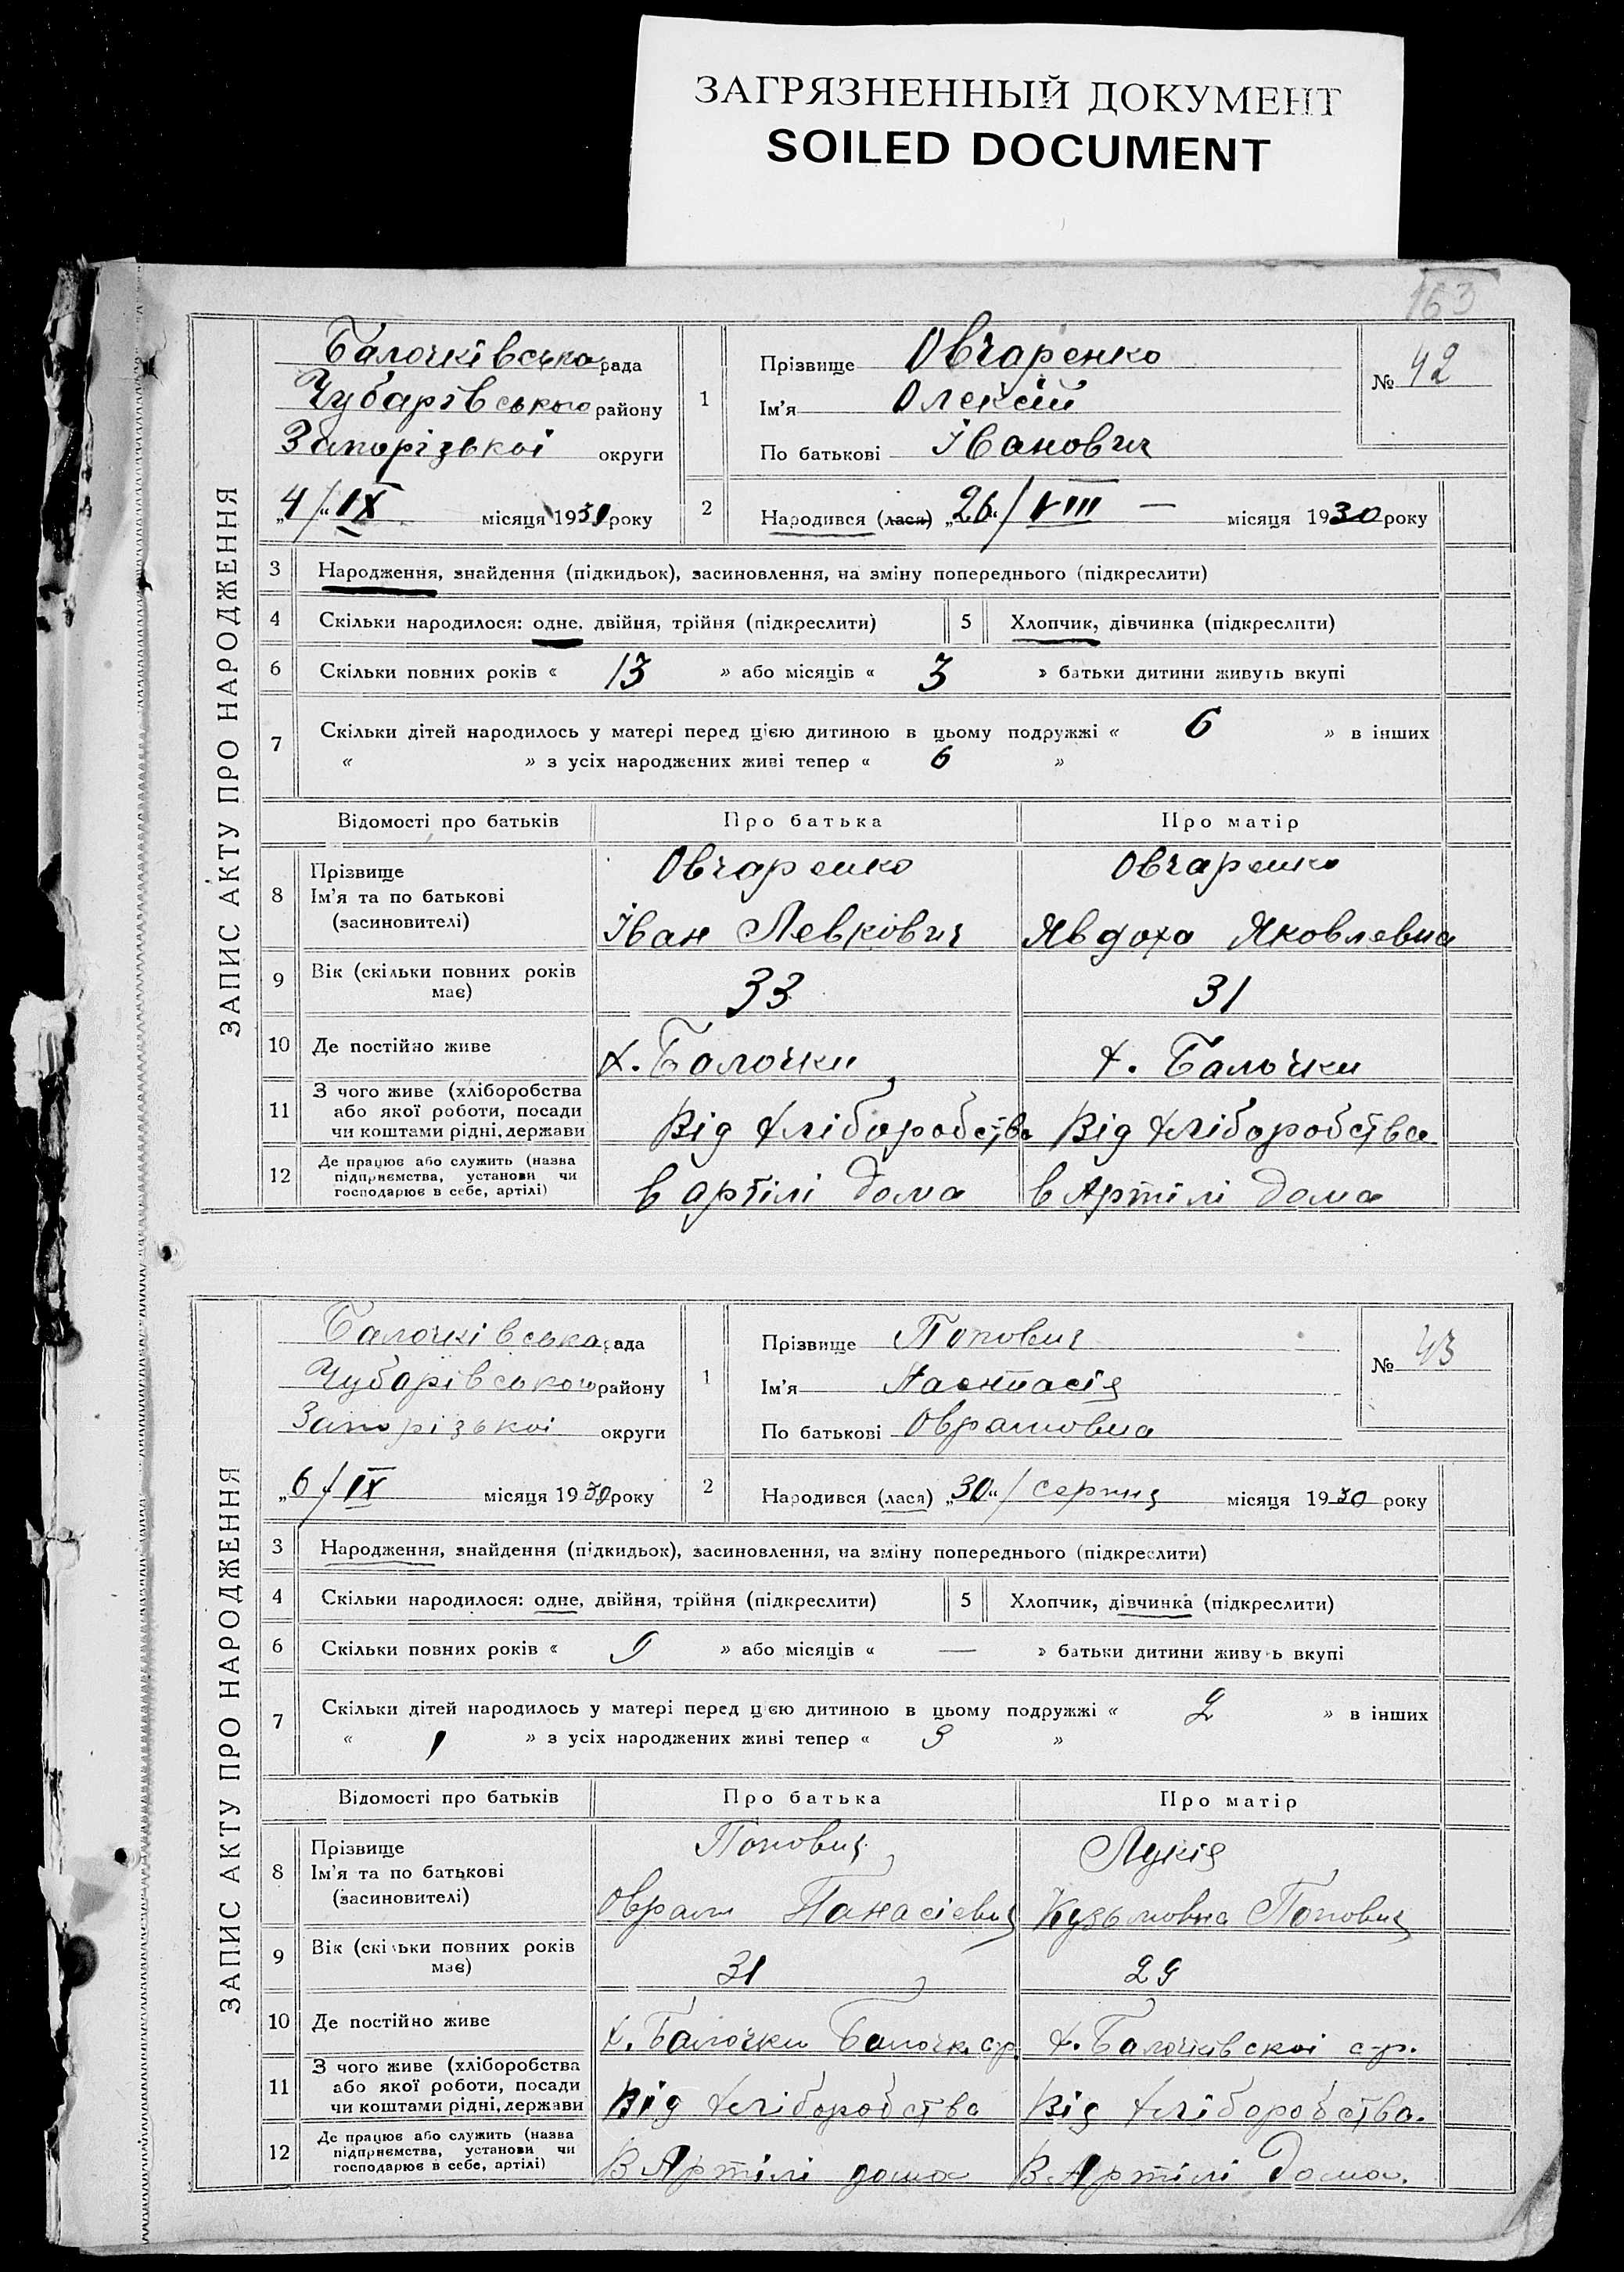 ЗАГРЯЗНЕННЫЙ ДОКУМЕНТ
SOILED DOCUMENT
163
ЗАПИС АКТУ ПРО НАРОДЖЕННЯ
Балочківська рада
Чубарівського району
Запорізької округи
„4/“ IX місяця 1930 року
1
Прізвище Овчаренко
Ім'я Олексій
По батькові Іванович
№ 42
2 Народився (лася) „26“/VIII — місяця 1930 року
3 Народження, знайдення (підкидьок), засиновлення, на зміну попереднього (підкреслити)
4 Скільки народилося: одне, двійня, трійня (підкреслити) 5 Хлопчик, дівчинка (підкреслити)
6 Скільки повних років « 13 » або місяців « 3 » батьки дитини живуть вкупі
7 Скільки дітей народилось у матері перед цією дитиною в цьому подружжі « 6 » в інших
« » з усіх народжених живі тепер « 6 »
Відомості про батьків Про батька Про матір
8 Прізвище Овчаренко Овчаренко
Ім'я та по батькові
(засиновителі) Іван Левкович Явдоха Яковлевна
9 Вік (скільки повних років
має) 33 31
10 Де постійно живе х. Балочки х. Балочки
11 З чого живе (хліборобства
або якої роботи, посади
чи коштами рідні, держави Від хліборобства Від хліборобства
12 Де працює або служить (назва
підприємства, установи чи
господарює в себе, артілі) в артілі дома в Артілі дома
ЗАПИС АКТУ ПРО НАРОДЖЕННЯ
Балочківська рада
Чубарівського району
Запорізької округи
„6/ IX місяця 1930 року
1
Прізвище Попович
Ім'я Настасія
По батькові Оврамовна
№ 43
2 Народився (лася) „30“/ серпня місяця 1930 року
3 Народження, знайдення (підкидьок), засиновлення, на зміну попереднього (підкреслити)
4 Скільки народилося: одне, двійня, трійня (підкреслити) 5 Хлопчик, дівчинка (підкреслити)
6 Скільки повних років « 9 » або місяців « — » батьки дитини живуть вкупі
7 Скільки дітей народилось у матері перед цією дитиною в цьому подружжі « 2 » в інших
« 1 » з усіх народжених живі тепер « 3 »
Відомості про батьків Про батька Про матір
8 Прізвище Попович Лукія
Ім'я та по батькові
(засиновителі) Оврам Панасієвич Кузьмовна Попович
9 Вік (скільки повних років
має) 31 29
10 Де постійно живе х. Балочки Балочк. с/р. х. Балочківскої с-р.
11 З чого живе (хліборобства
або якої роботи, посади
чи коштами рідні, держави Від хліборобства Від хліборобства.
12 Де працює або служить (назва
підприємства, установи чи
господарює в себе, артілі) В Артілі дома В Артілі дома.